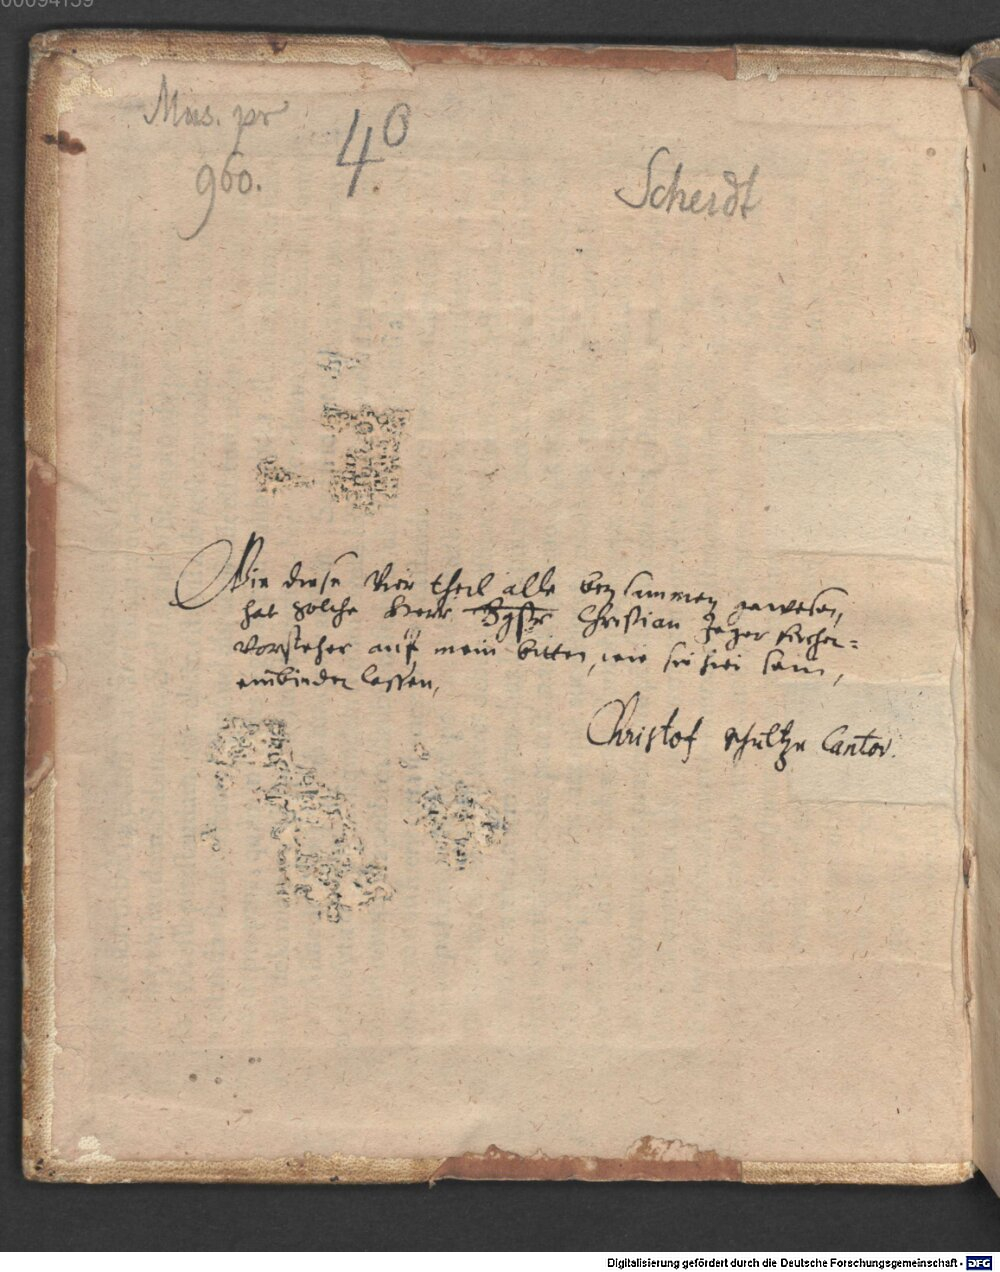 00094159
Mus. pr
4°
960.
Scherdt
Wie diese Vier theil alle beysammen gewesen,
hat solche Herr Christian Jeger Kirchen=
vorsteher auf mein bitten, wie sie hier sein,
einbinden lassen,
Christof Schultze Cantor.
Digitalisierung gefördert durch die Deutsche Forschungsgemeinschaft - DFG